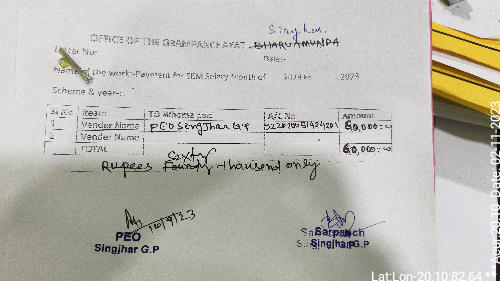 Singhar
OFFICE OF THE GRAMPANCHAYAT BHARUAMUNDA
Letter No: Date:-
Name of the work:-Payment for SEM Salary Month of 2023
Scheme & year-:
Sl No Iteam To Whome paid A/C No Amount
1 Vender Name PEO Singjhar G.P 60,000=00
2 Vender Name
TOTAL 60,000=00
Sixty
Rupees thousend only
10/9/23
PEO Sarpanch
Singjhar G.P Singjhar G.P
Lat:Lon-20.10:82.64 **
Date-02-11-2023